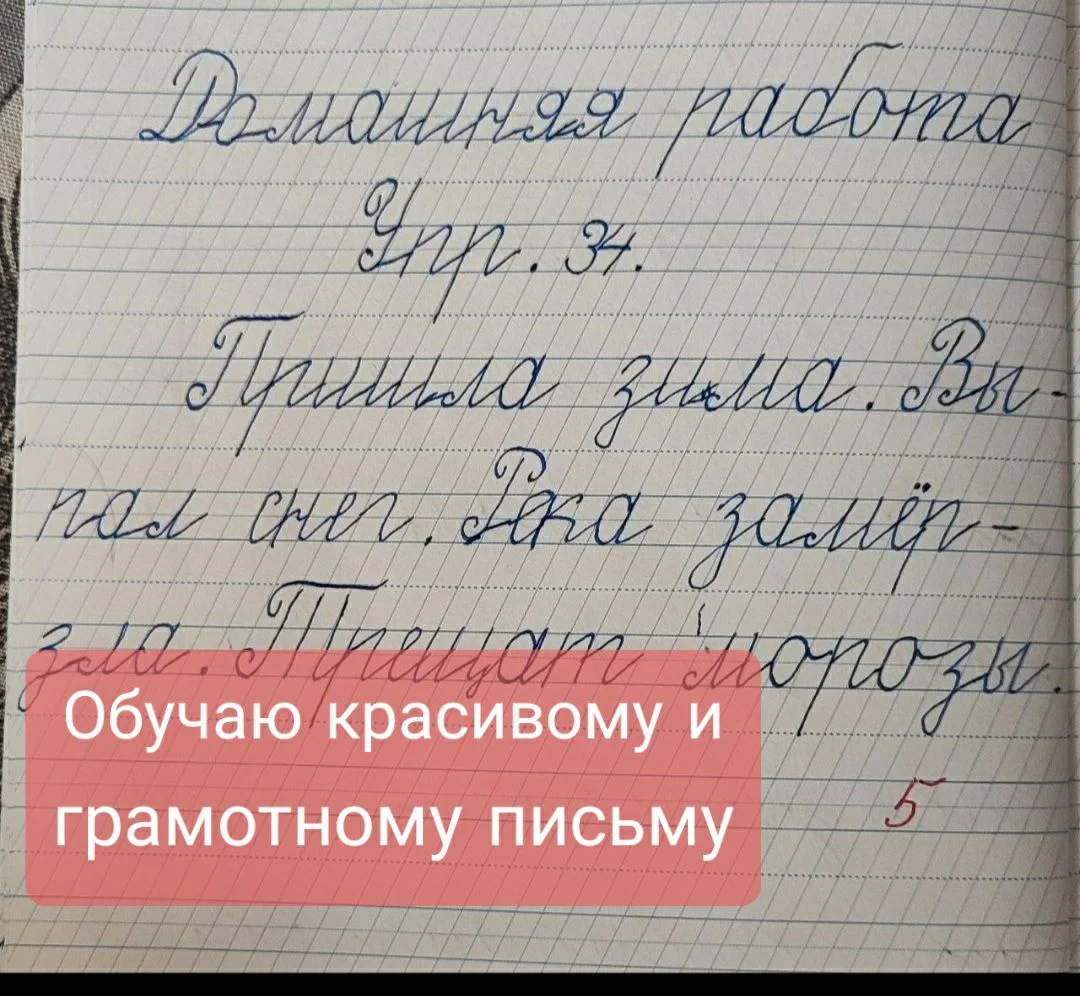 Домашняя работа
Упр. 34.
Пришла зима. Вы-
пал снег. Река замёр-
зла. Трещат морозы.
Обучаю красивому и
грамотному письму
5